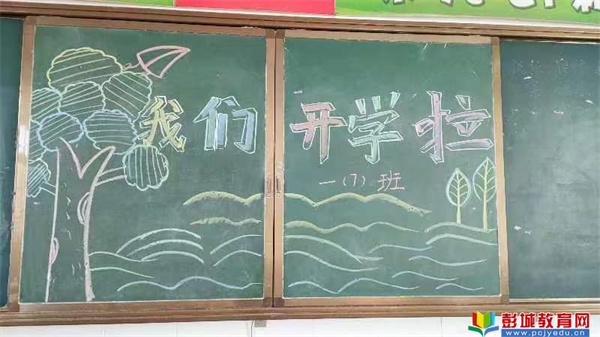 我们开学拉
一(7)班
彭城教育网
www.pcjyedu.cn